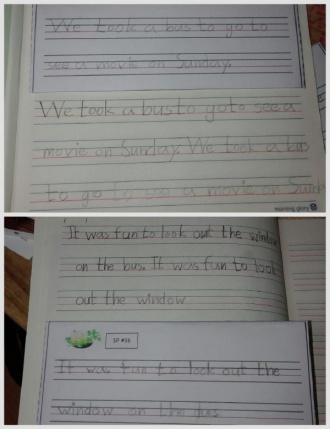 We took a bus to go to
see a movie on Sunday.
We took a bus to go to see a
movie on Sunday. We took a bus
to go to see a movie on Sund
It was fun to look out the window
on the bus. It was fun to look
out the window
SP #36
It was fun to look out the
window on the bus.